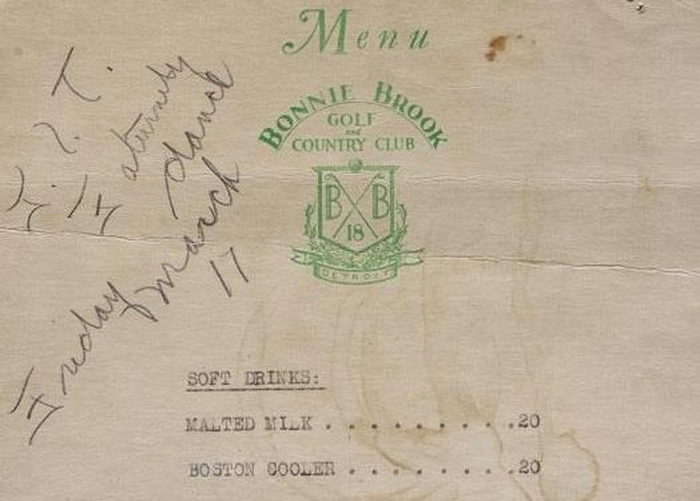 Menu
BONNIE BROOK
GOLF
and
COUNTRY CLUB
B B
18
DETROIT
Faternity
dance
Friday March
17
SOFT DRINKS:
MALTED MILK . . . . . . . . . .20
BOSTON COOLER . . . . . . . . .20